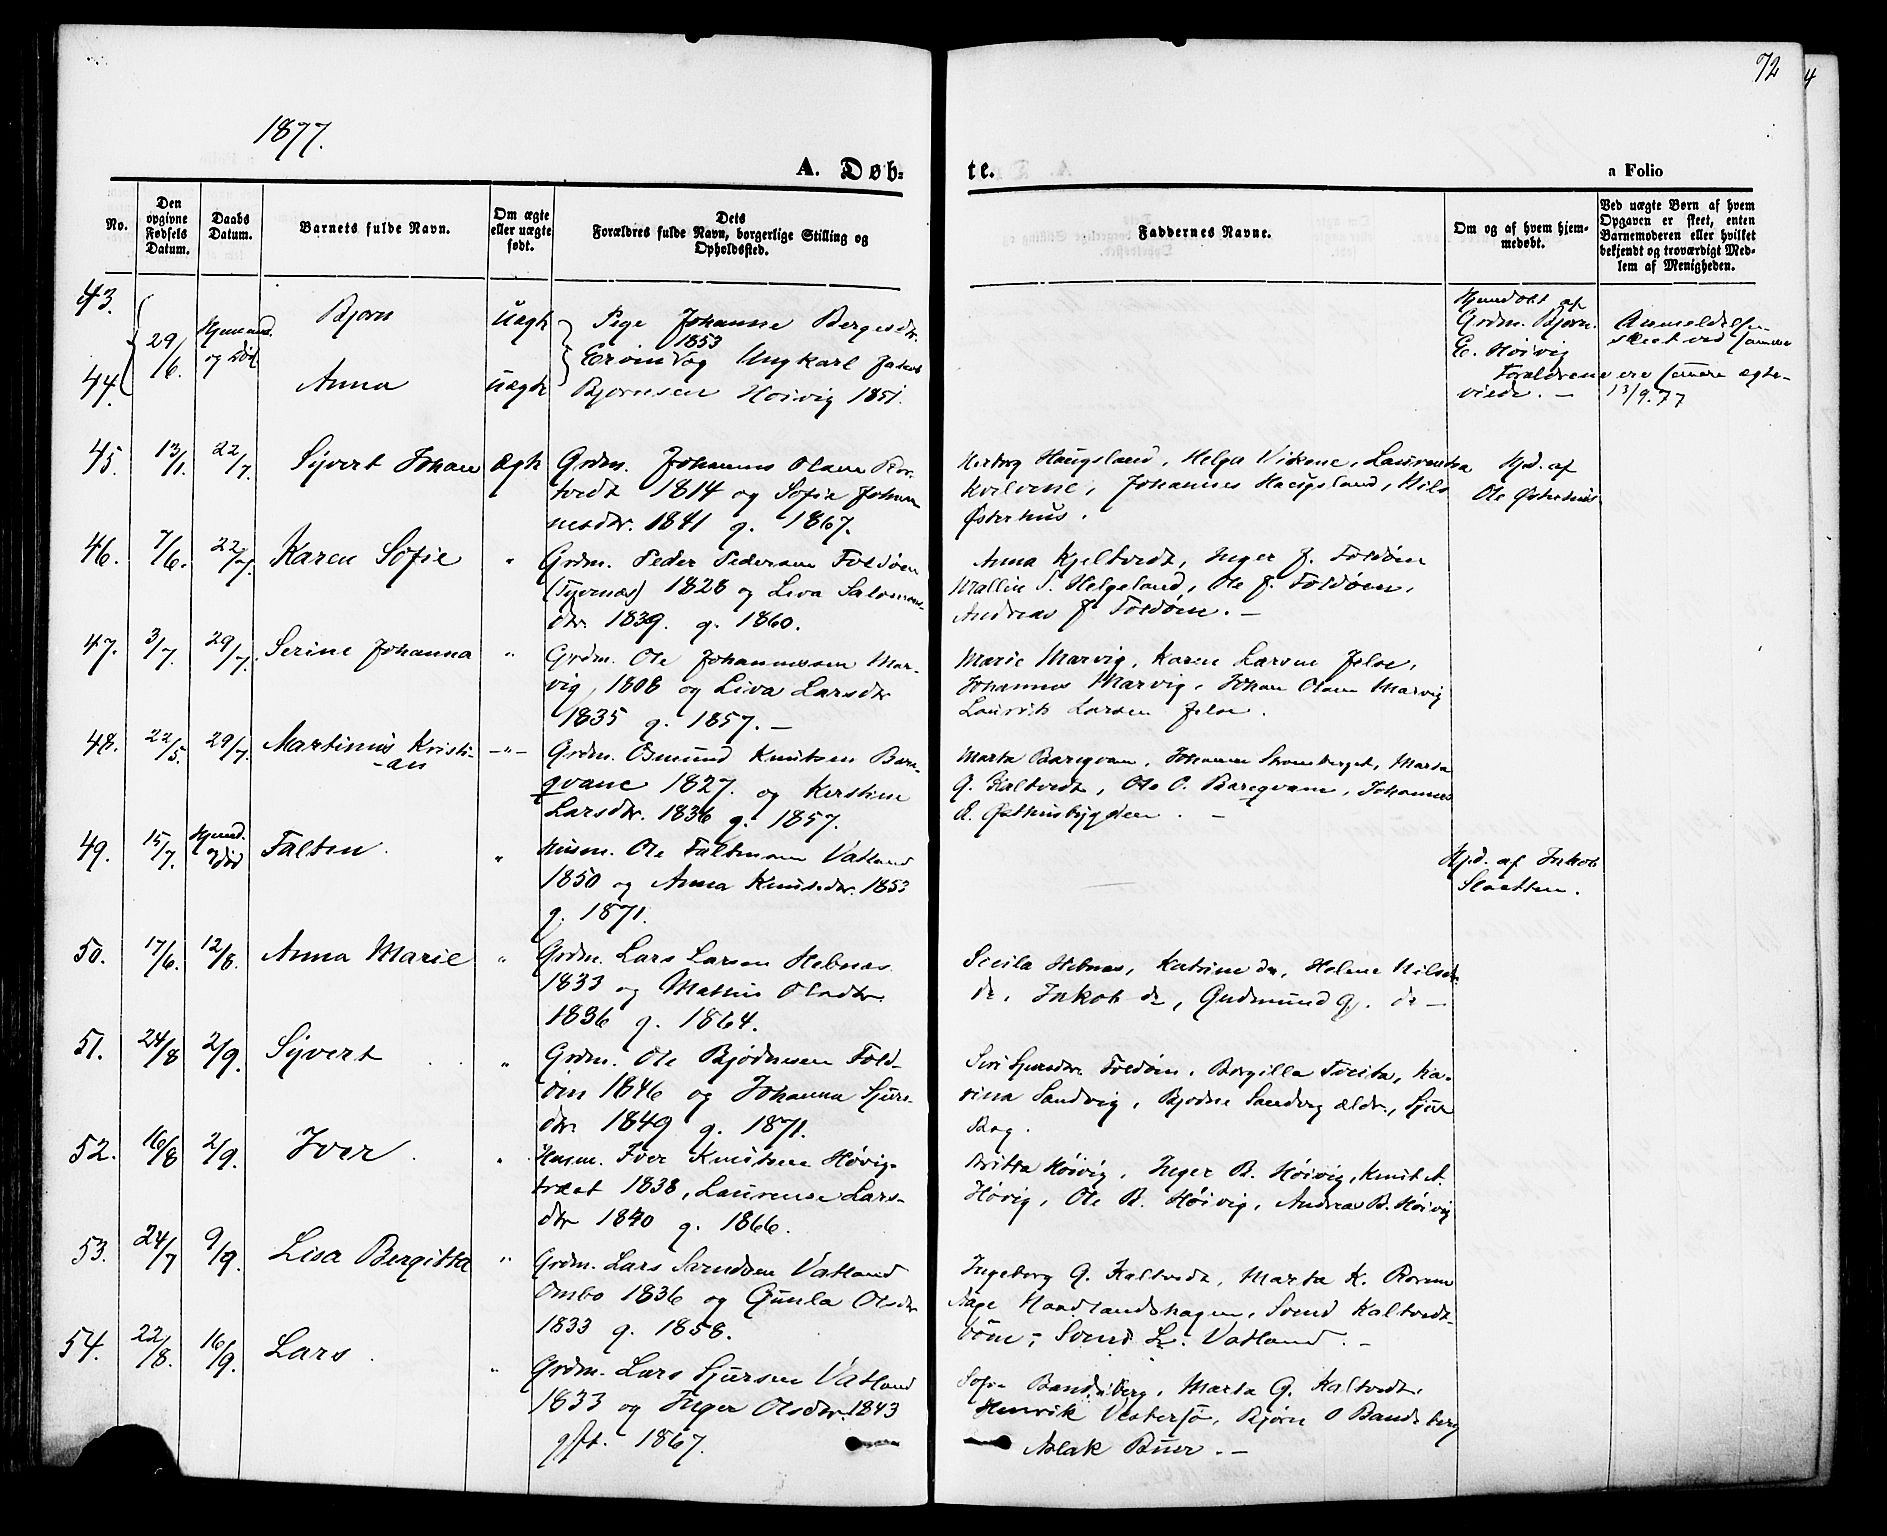 72
4
1877.
A. Døb-
te.
a Folio
No.
Den opgivne Fødsels Datum.
Daabs Datum.
Barnets fulde Navn.
Om ægte eller uægte født.
Dets
Forældres fulde Navn, borgerlige Stilling og
Opholdssted.
Faddernes Navne.
Om og af hvem hjem-
medøbt.
Ved uægte Børn af hvem
Opgaven er skeet, enten
Barnemoderen eller hvilket
bekjendt og troværdigt Med-
lem af Menigheden.
43.
29/6.
og død
Bjørn
Uægte
Pige Johanne Bergesdtr.
1853
Ungkarl Jakob
44.
Anna
uægte
Bjørnsen Høivig 1851.
Hjemdøbt af
Grdm. Bjørn
E. Høivig
Anmeldelsen
skeet ved samme
Forældrene ere senere ægte-
viede. — 13/9.77
45. 13/1. 22/7. Sijvert Johan ægte
Grdm. Johannes Olsen
tvedt 1814 og Sofie Johan
nesdtr. 1841 g. 1867.
Herborg Haugsland, Helga Vikene, Laurentza
Kvilvene, Johannes Haugsland, Nils
Østerhus.
Hjd. af
Ole Østerhus
46. 7/6. 22/7. Karen Sofie "
Grdm. Peder Pedersen Foldøen
(Tyvenæs) 1828 og Liva Salomons-
dtr. 1839. g. 1860.
Anna Kjeltvedt, Inger J. Foldøen
Mallin S. Helgeland, Ole J. Foldøen,
Andreas J. Foldøen. —
47. 3/7. 29/7. Serine Johanna "
Grdm. Ole Johannessen Mar-
vig, 1808 og Liva Larsdtr
1835 g. 1857. —
Marie Marvig, Karen Larsen Jelse,
Johannes Marvig, Johan Olsen Marvig
Laurits Larsen Jelse.
48. 22/5. 29/7. Martinius Kristi-
-an — " —
Grdm. Osmund Knutsen Bare-
qvane 1827. og Kerstine
Larsdtr. 1836 g. 1857.
Marta Bareqvam, Johanne Strømberget, Marta
G. Kaltvedt, Ole O. Bareqvam, Johannes
E. Østhusbygden. —
49. 15/7. Hjemd.
død Falten. "
Husm. Ole Faltinsen Vatland
1850 og Anna Knutsdtr. 1853
g. 1871.
Hjd. af Jakob
Slaatten.
50. 17/6. 12/8. Anna Marie "
Grdm. Lars Larsen Hebnæs
1833 og Mattis Olsdtr.
1836 g. 1864.
Sicila Hebnæs, Katrine do, Helene Nilsdtr.
do, Jakob do, Gudmund G. do —
51. 24/8 2/9. Sijvert "
Grdm. Ole Bjødnesen Fold-
øen 1846 og Johanna Sjurs-
dtr 1849 g. 1871.
Siri Sjursdtr. Foldøen, Bergilla Tveita, Ka-
rina Sandvig, Bjødne Sandvig ældr., Sjur
52. 16/8 2/9. Iver "
Husm. Iver Knutsen Høvig-
træet 1838, Laurense Lars-
dtr 1840 g. 1866.
Britta Høivig, Inger B. Høivig, Knut A.
Høvig, Ole B. Høivig, Andreas B. Høivig
53. 24/7 9/9. Lisa Bergitta "
Grdm. Lars Svendsen Vatland
Ombo 1836 og Gunla Olsdtr
1833 g. 1858.
Ingeborg G. Kaltvedt, Marta K.
Aage Haadlandshagen, Svend Kaltvedt-
Svend L. Vatland. —
54. 22/8. 16/9. Lars. "
Grdm. Lars Sjursen Vatland
1833 og Inger Olsdtr. 1843
gft. 1867.
Sofie Bandsberg, Marta G. Kaltvedt,
Henrik Vestersjø, Bjørn O Bandsberg
Aslak Buer. —